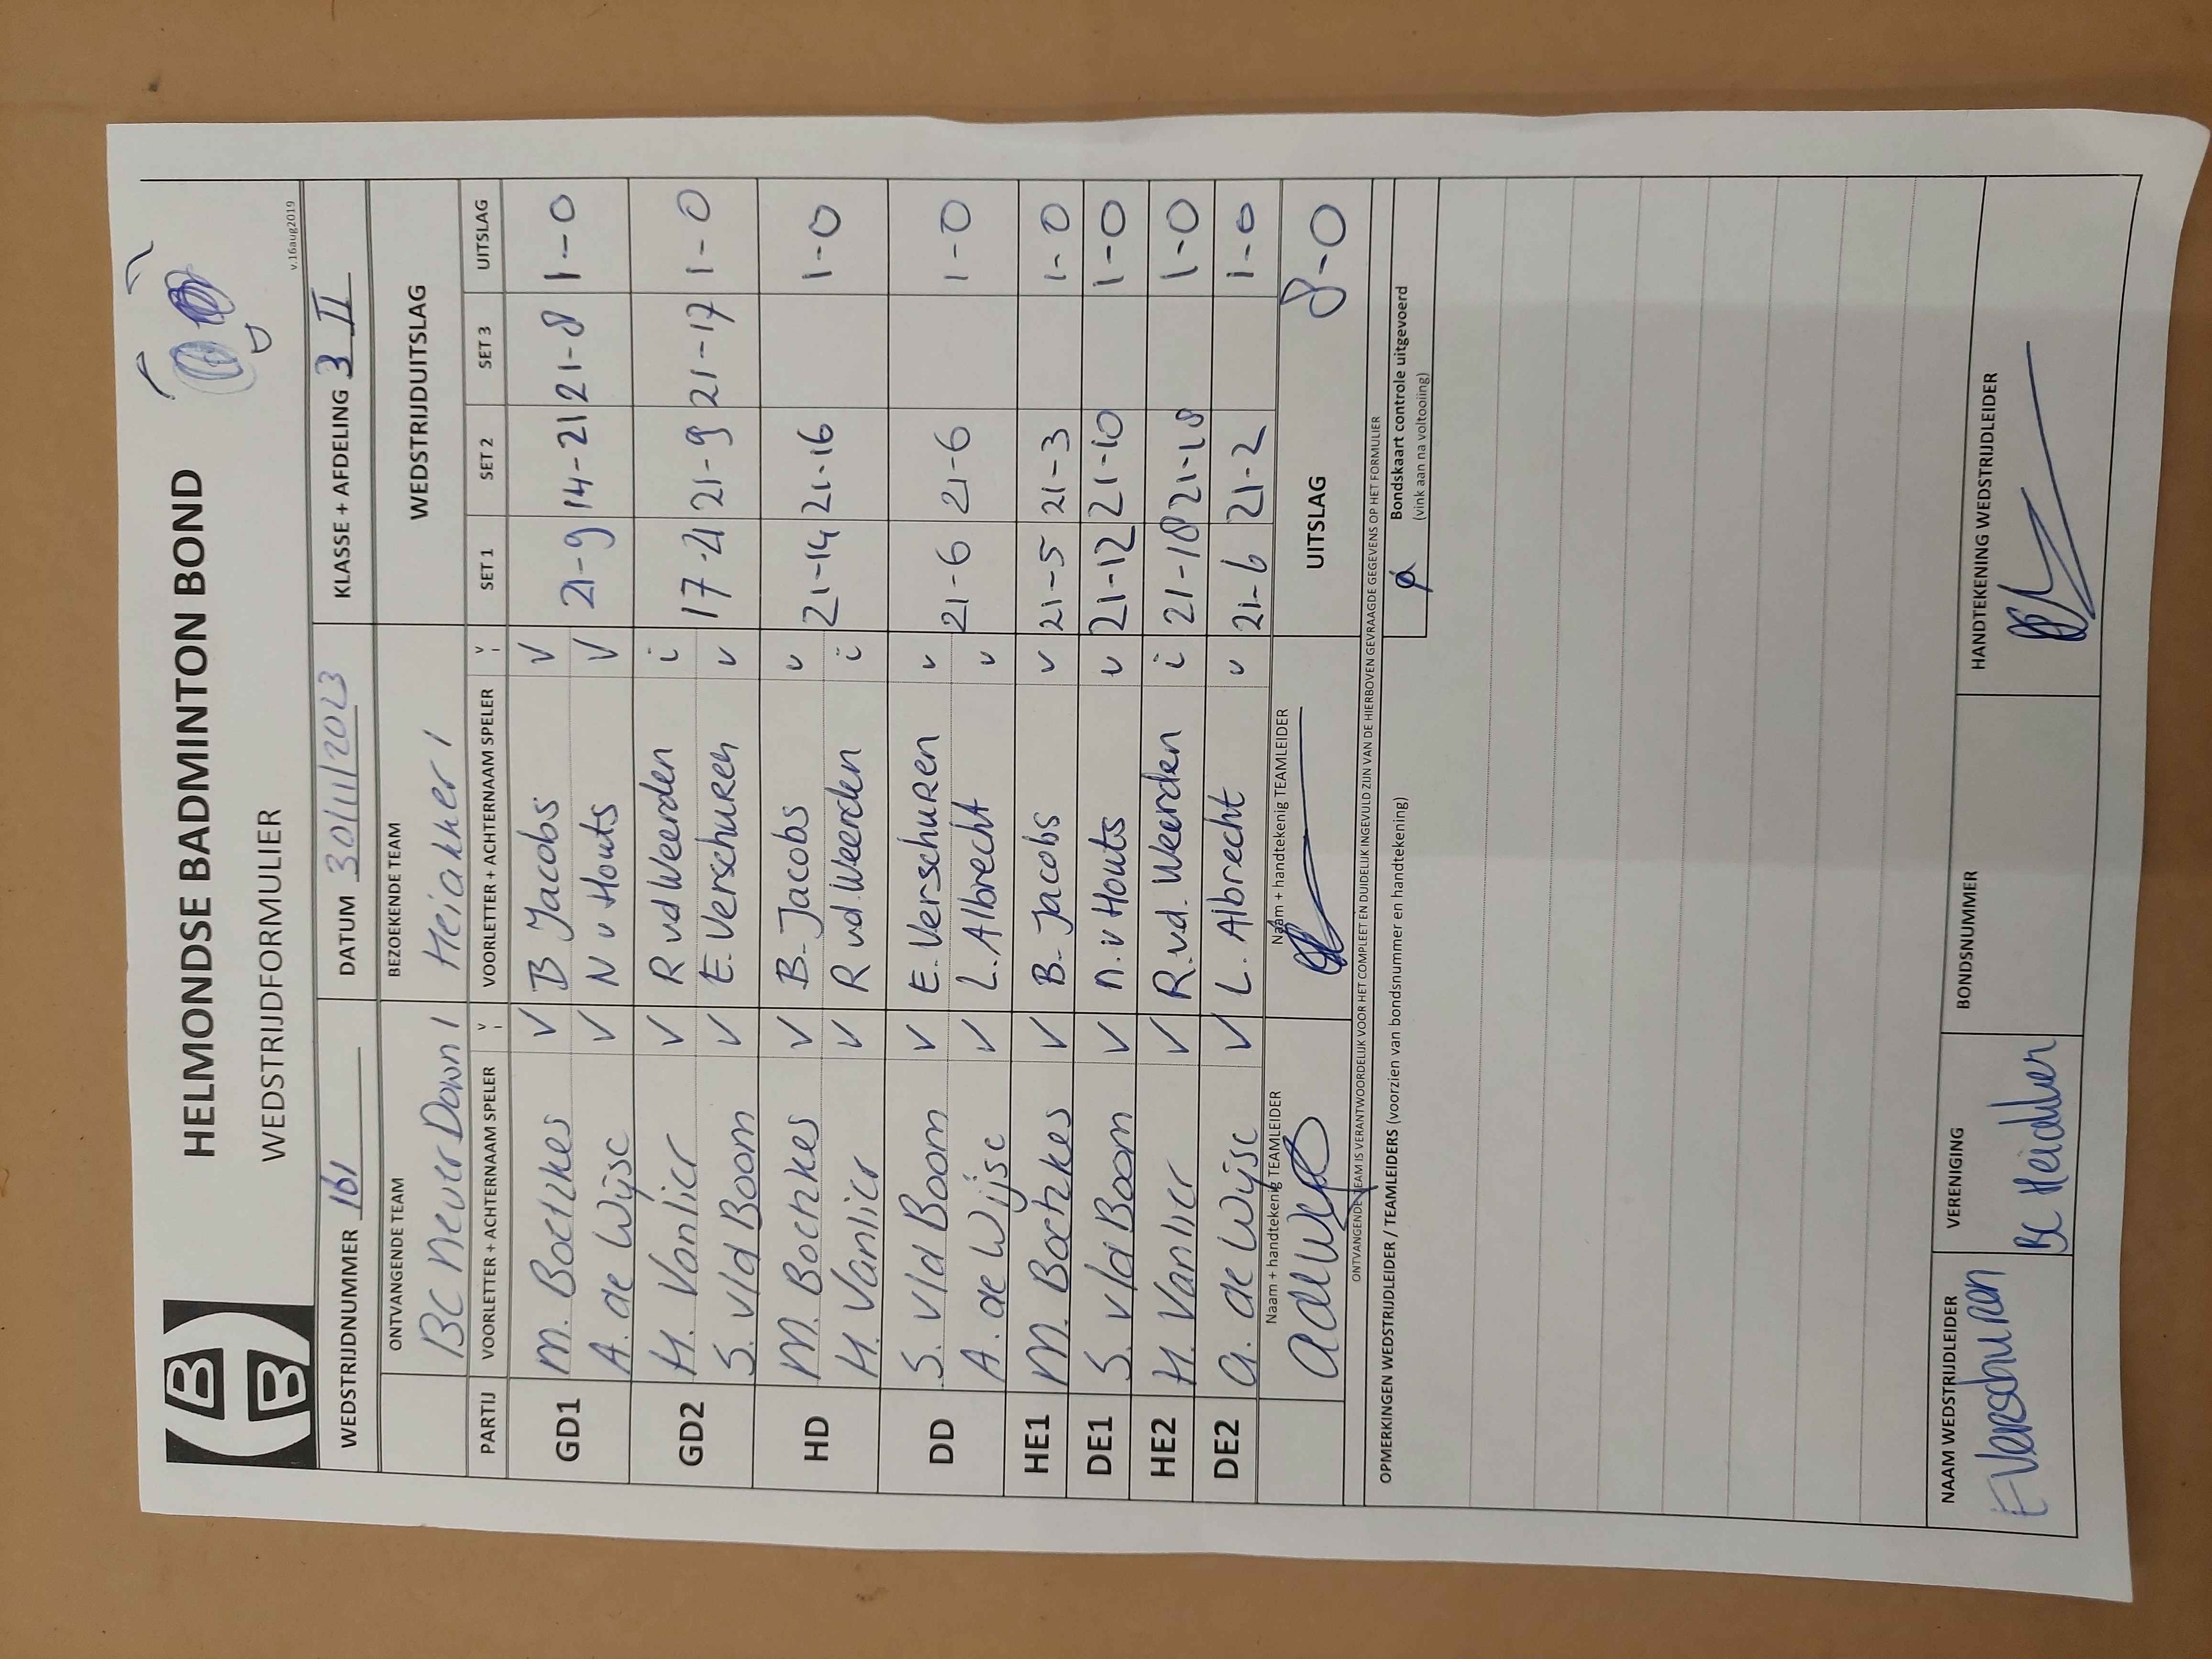 HELMONDSE BADMINTON BOND
WEDSTRIJDFORMULIER
v.16aug2019
WEDSTRIJDNUMMER 161 DATUM 30/11/2023 KLASSE + AFDELING 3 II
ONTVANGENDE TEAM BEZOEKENDE TEAM WEDSTRIJDUITSLAG
BC Never Down 1 Heiakker 1
PARTIJ VOORLETTER + ACHTERNAAM SPELER V I VOORLETTER + ACHTERNAAM SPELER V I SET 1 SET 2 SET 3 UITSLAG
GD1 M. Boetzkes V B Jacobs V 21-9 14-21 21-8 1-0
A. de Wijse V N v Houts V
GD2 H. Vanlier V R vd Weerden i 17-21 21-9 21-17 1-0
S. v/d Boom V E. Verschuren v
HD M. Boetzkes V B. Jacobs v 21-14 21-16 1-0
H. Vanlier V R vd. Weerden i
DD S. v/d Boom V E. Verschuren v 21-6 21-6 1-0
A. de Wijse V L. Albrecht v
HE1 M. Boetzkes V B. Jacobs v 21-5 21-3 1-0
DE1 S. v/d Boom V n. v Houts v 21-12 21-10 1-0
HE2 H. Vanlier V R. vd. Weerden i 21-18 21-18 1-0
DE2 a. de Wijse V L. Albrecht v 21-6 21-2 1-0
Naam + handtekenig TEAMLEIDER Naam + handtekenig TEAMLEIDER UITSLAG 8-0
ONTVANGENDE TEAM IS VERANTWOORDELIJK VOOR HET COMPLEET EN DUIDELIJK INGEVULD ZIJN VAN DE HIERBOVEN GEVRAAGDE GEGEVENS OP HET FORMULIER
OPMERKINGEN WEDSTRIJDLEIDER / TEAMLEIDERS (voorzien van bondsnummer en handtekening)
Bondskaart controle uitgevoerd
(vink aan na voltooiing)
NAAM WEDSTRIJDLEIDER VERENIGING BONDSNUMMER HANDTEKENING WEDSTRIJDLEIDER
E Verschuren BC Heiakker